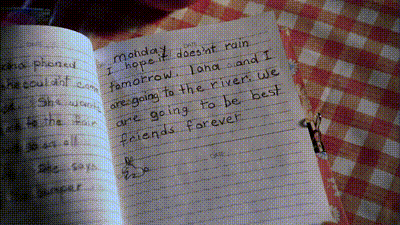 phoned
she couldn't come
She
to the
She says
monday
I hope it doesint rain
tomorrow. Iana and I
are going to the river. We
are going to be best
friends forever